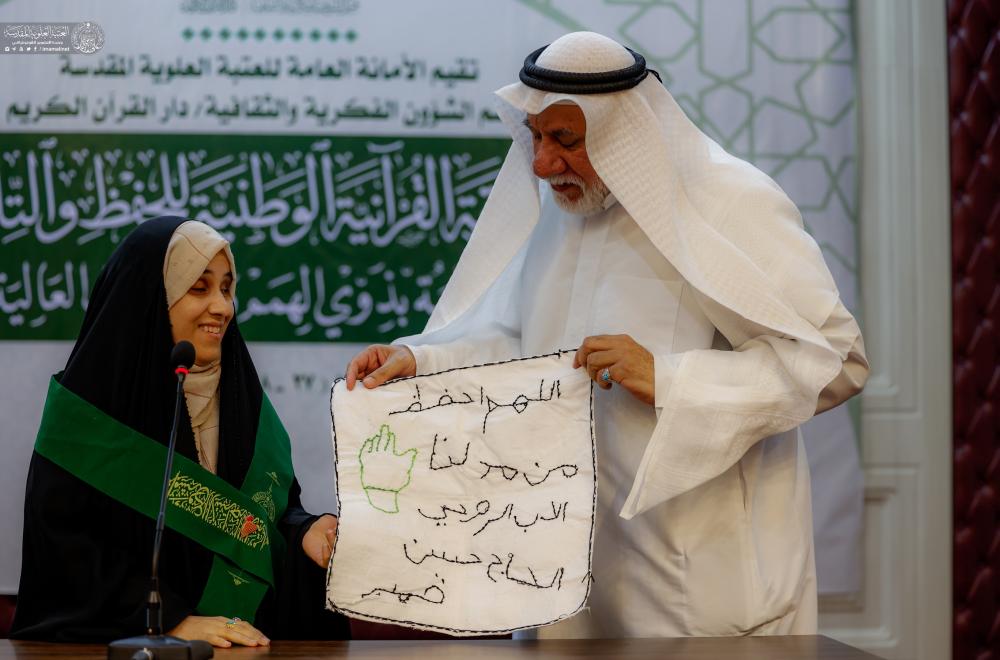 العتبة العلوية المقدسة
تقيم الأمانة العامة للعتبة العلوية المقدسة
الشؤون الفكرية والثقافية / دار القرآن الكريم
القرآنية الوطنية للحفظ
بذوي الهمم العالية
اللهم احفظ
من مد لنا
الاب الروحي
الحاج حسين